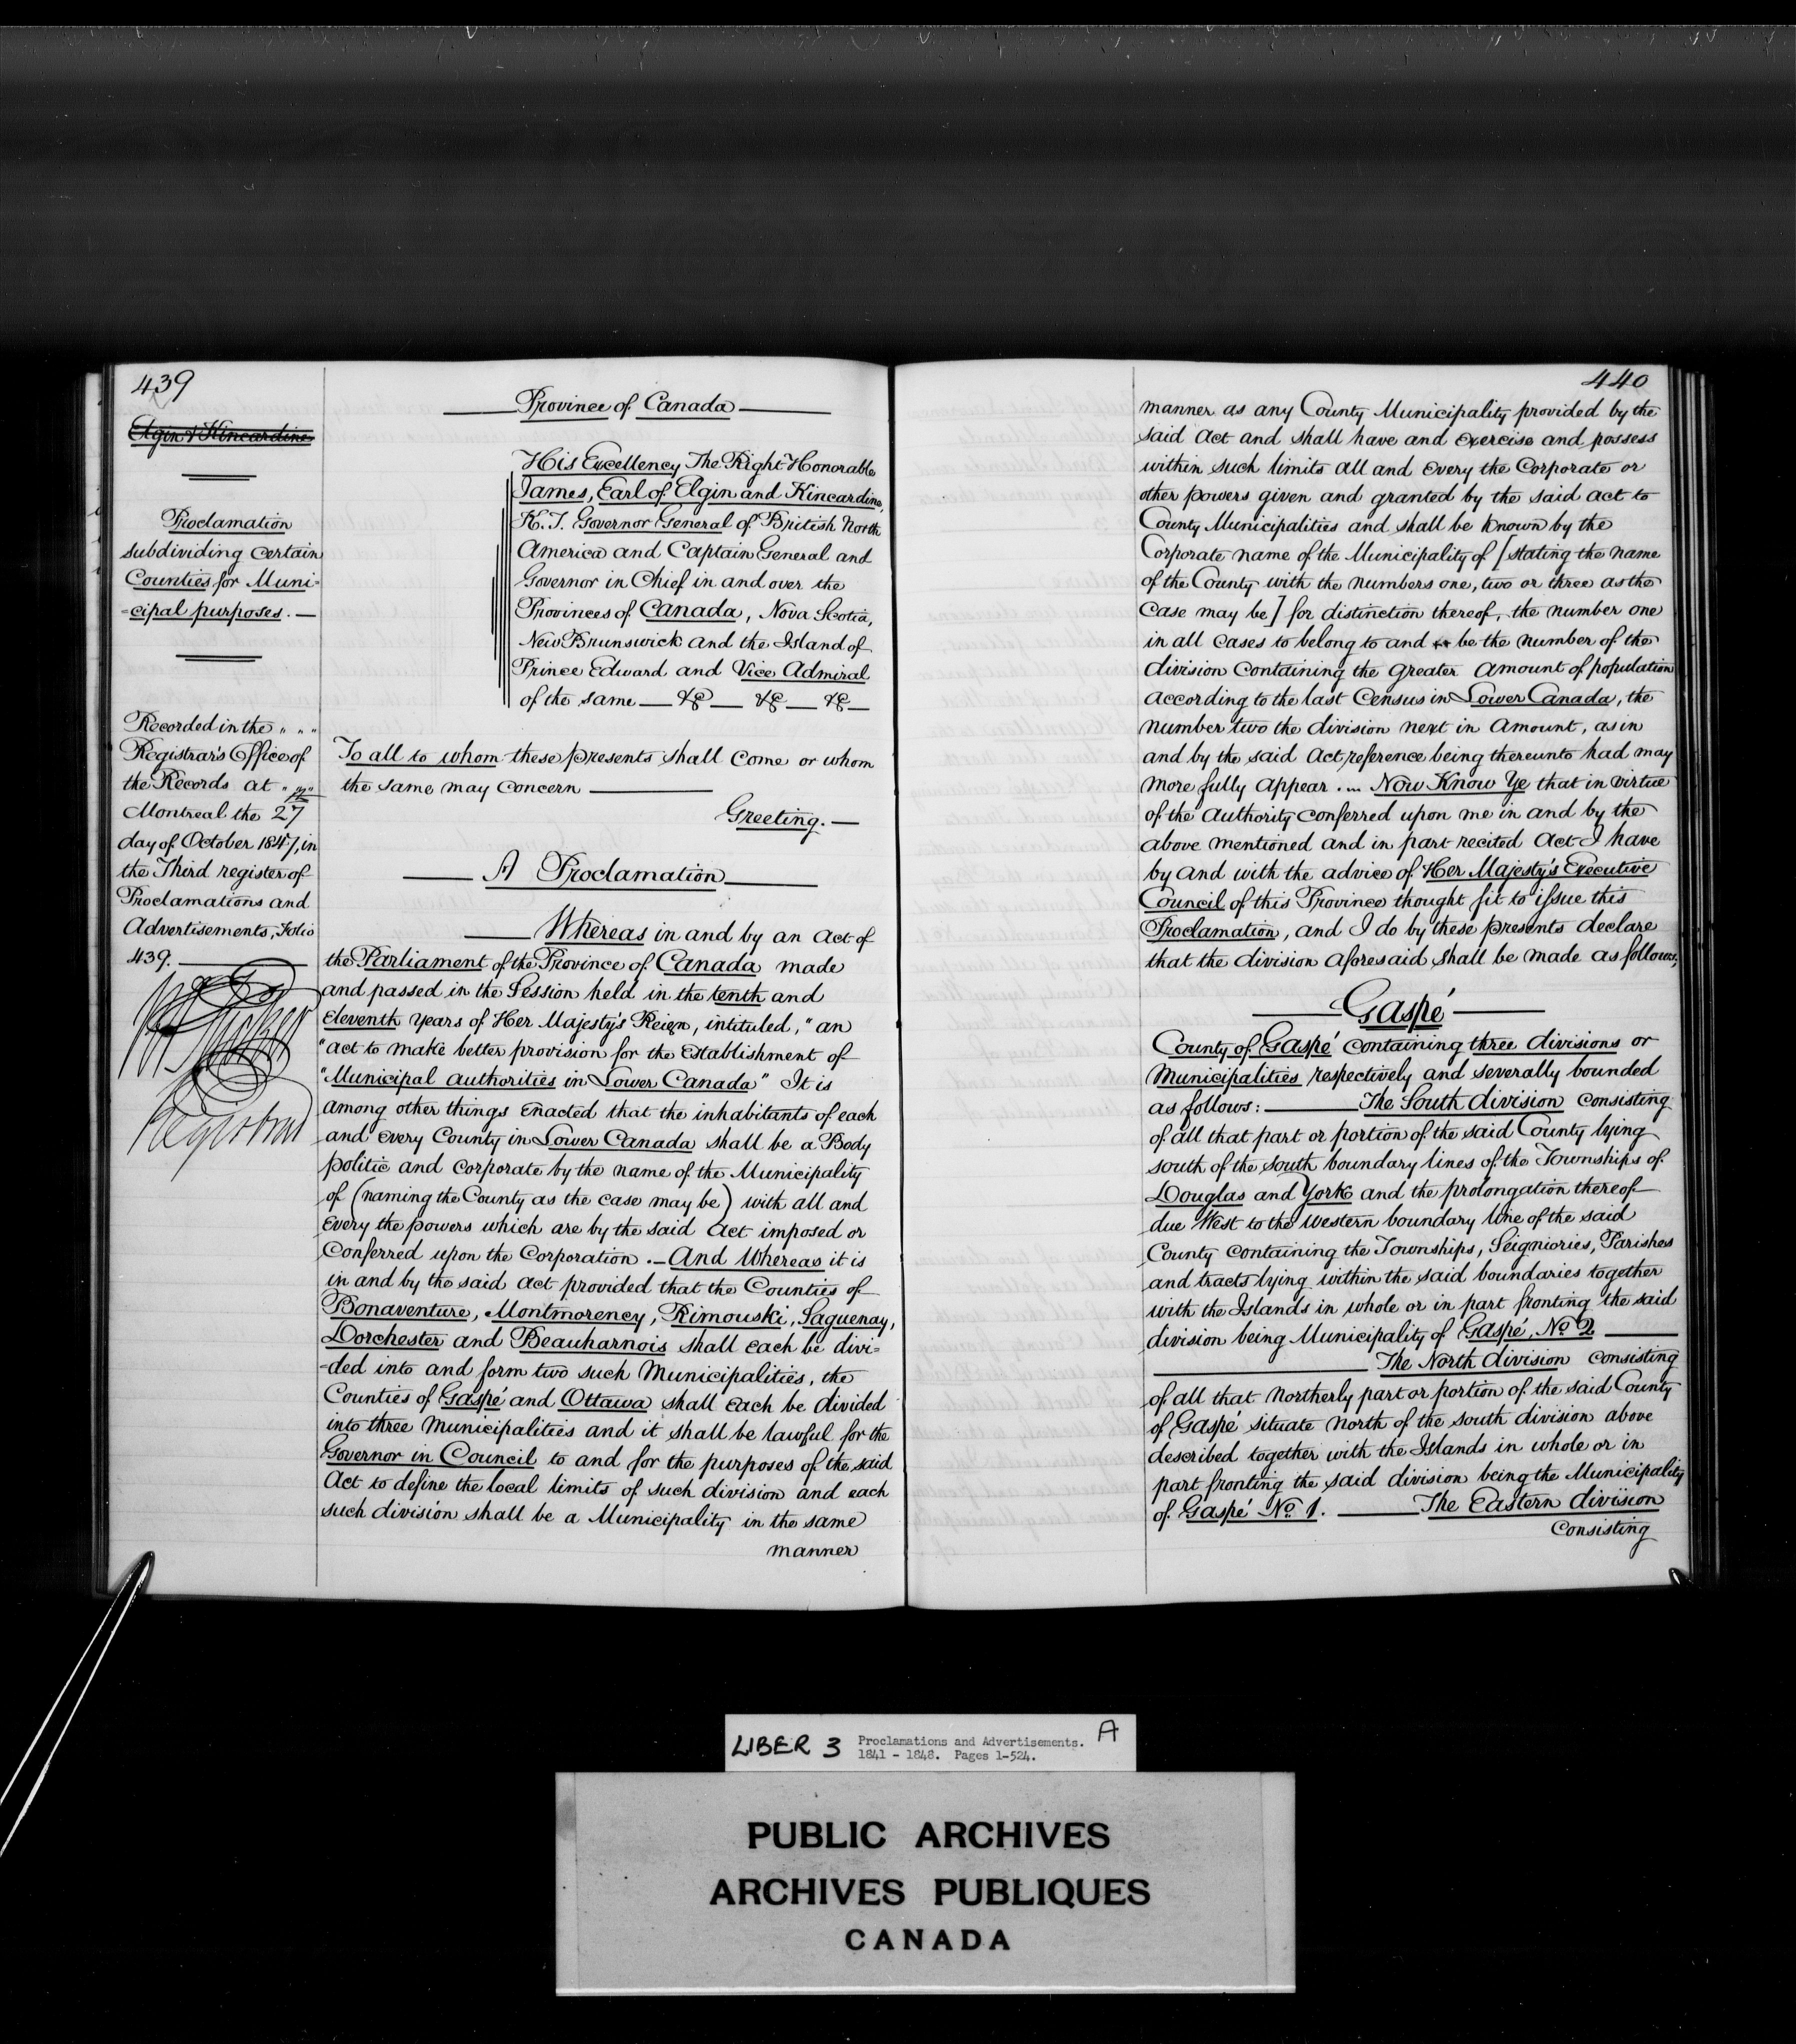 439
Elgin & Kincardine
Proclamation
subdividing certain
Counties for Muni=
=cipal purposes. —
Recorded in the „ „ „
Registrar's Office of
the Records at „
Montreal the 27
day of October 1847, in
the Third register of
Proclamations and
Advertisements, Folio
439.
Registrar
Province of Canada
His Excellency The Right Honorable
James, Earl of Elgin and Kincardine,
K.T. Governor General of British North
America and Captain General and
Governor in Chief in and over the
Provinces of Canada, Nova Scotia,
New Brunswick and the Island of
Prince Edward and Vice Admiral
of the same — &c — &c — &c —
To all to whom these presents shall come or whom
the same may concern —
Greeting. —
A Proclamation
Whereas in and by an Act of
the Parliament of the Province of Canada made
and passed in the Session held in the tenth and
Eleventh years of Her Majesty's Reign, intituled, "an
"act to make better provision for the Establishment of
"Municipal authorities in Lower Canada" It is
among other things Enacted that the inhabitants of each
and every County in Lower Canada shall be a Body
politic and corporate by the name of the Municipality
of (naming the County as the case may be) with all and
Every the powers which are by the said Act imposed or
Conferred upon the Corporation . — And Whereas it is
in and by the said Act provided that the Counties of
Bonaventure, Montmorency, Rimouski, Saguenay,
Dorchester and Beauharnois shall each be divi=
=ded into and form two such Municipalities, the
Counties of Gaspé and Ottawa shall each be divided
into three Municipalities and it shall be lawful for the
Governor in Council to and for the purposes of the said
Act to define the local limits of such division and each
such division shall be a Municipality in the same
manner
440
manner as any County Municipality provided by the
said Act and shall have and exercise and possess
within such limits all and every the Corporate or
other powers given and granted by the said Act to
County Municipalities and shall be known by the
Corporate name of the Municipality of [stating the name
of the County with the numbers one, two or three as the
Case may be] for distinction thereof, the number one
in all cases to belong to and to be the number of the
division containing the greater amount of population
according to the last Census in Lower Canada, the
number two the division next in amount, as in
and by the said Act, reference being thereunto had may
more fully appear. ... Now Know Ye that in virtue
of the Authority conferred upon me in and by the
above mentioned and in part recited Act I have
by and with the advice of Her Majesty's Executive
Council of this Province thought fit to issue this
Proclamation, and I do by these presents declare
that the division aforesaid shall be made as follows,
Gaspé
County of Gaspé containing three divisions or
Municipalities respectively and severally bounded
as follows: — The South division consisting
of all that part or portion of the said County lying
south of the south boundary lines of the Townships of
Douglas and York and the prolongation thereof
due West to the western boundary line of the said
County containing the Townships, Seigniories, Parishes
and tracts lying within the said boundaries together
with the Islands in whole or in part fronting the said
division being Municipality of Gaspé, No 2 —
The North division consisting
of all that Northerly part or portion of the said County
of Gaspé situate North of the south division above
described together with the Islands in whole or in
part fronting the said division being the Municipality
of Gaspé No 1. — The Eastern division
Consisting
LIBER 3 Proclamations and Advertisements. A
1841 - 1848. Pages 1-524.
PUBLIC ARCHIVES
ARCHIVES PUBLIQUES
CANADA